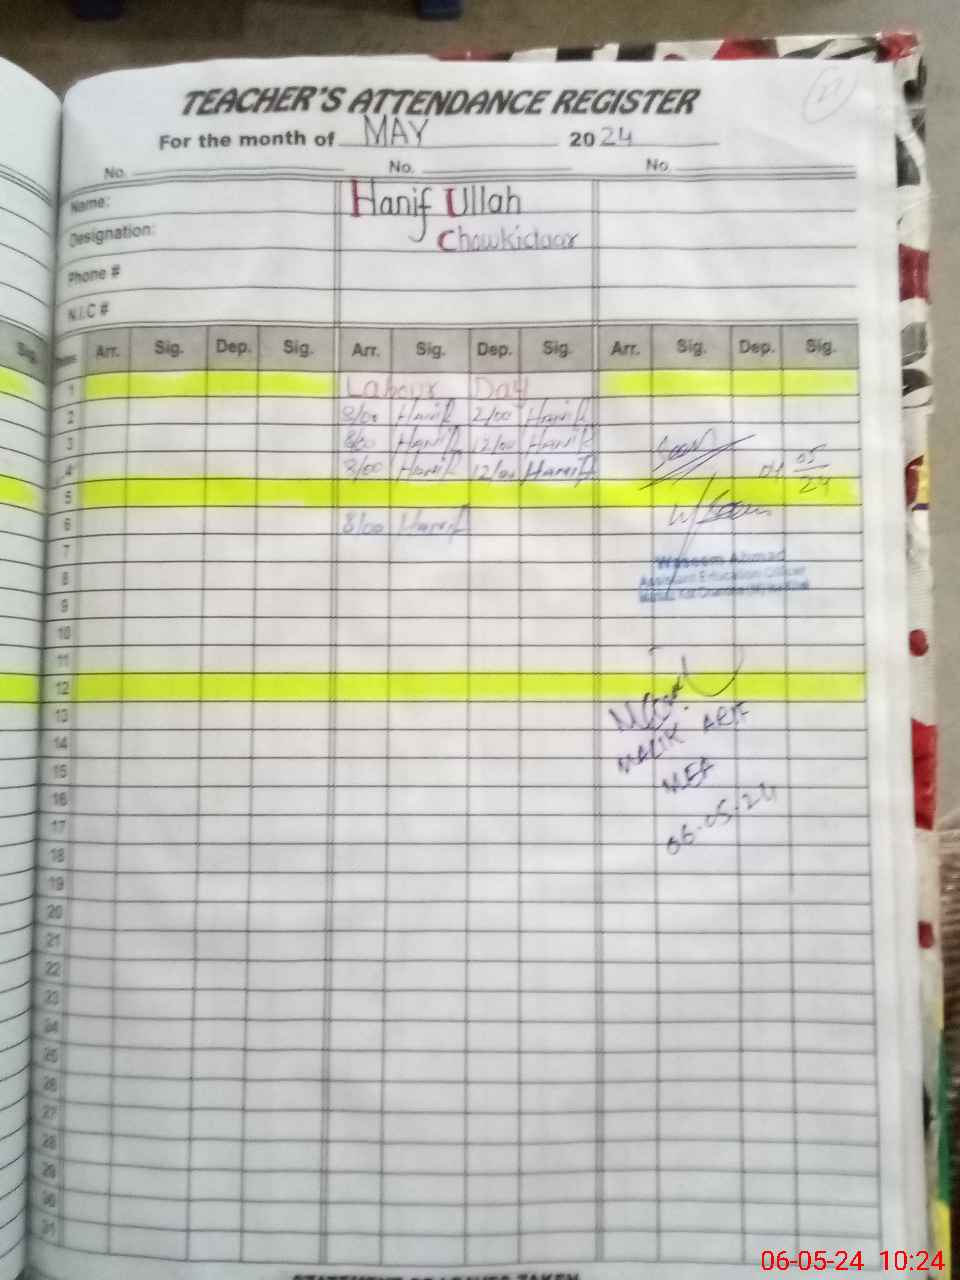 TEACHER'S ATTENDANCE REGISTER
For the month of MAY 2024
No. No. No
Name: Hanif Ullah
Designation: Chowkidaar
Phone #
N.I.C #
Sig. Arr. Sig. Dep. Sig. Arr. Sig. Dep. Sig. Arr. Sig. Dep. Sig.
1 Labour Day
2 8/00 Hanif 2/00 Hanif
3 8/00 Hanif 12/00 Hanif
4 8/00 Hanif 12/00 Hanif 04 05/24
5
6 8/00 Hanif
7
Waseem Ahmad
8
Assistant Education Officer
9
10
11
12
13
14 MALIK ARIF
15
16 MEA
17
18 06-05-24
19
20
21
22
23
24
25
26
27
28
29
30
31
STATEMENT OF LEAVES TAKEN
06-05-24 10:24